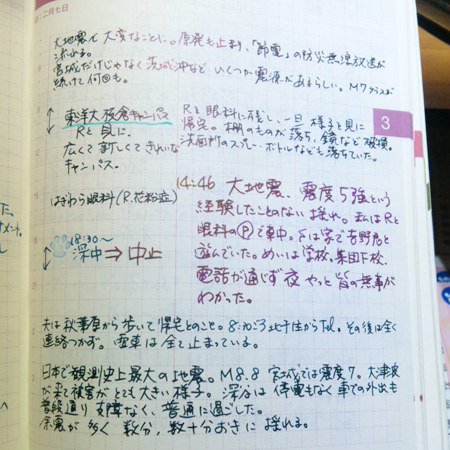 二月七日
大地震で大変なことに。原発も止まり、「節電」の防災無線放送が
流れる。
宮城だけじゃなく茨城沖など いくつか震源があるらしい。M7クラスが
続けて何回も。
東洋大 板倉キャンパス
Rと見に。
広くて新しくてきれいな
キャンパス。
Rと眼科に残し、一旦 様子を見に
帰宅。棚のものが落ち、鏡など破損。
洗面所のスプレーボトルなども落ちていた。
3
はぎわら眼科(R.花粉症)
18:30〜
深中⇒中止
14:46 大地震、震度5強という
経験したことのない揺れ。私はRと
眼科のⓅで車中。Sは家で吉野君と
遊んでいた。めいは学校、集団下校。
電話が通じず夜 やっと皆の無事が
わかった。
夫は秋葉原から歩いて帰宅とのこと。8:ねごろ北千住からTel。その後は全く
連絡つかず。電車は全て止まっている。
日本で観測史上最大の地震。M8.8 宮城では震度7。大津波
が来て被害がとても大きい様子。深谷は停電もなく車での外出も
普段通り 支障なく、普通に過ごした。
余震が多く 数分、数十分おきに揺れる。